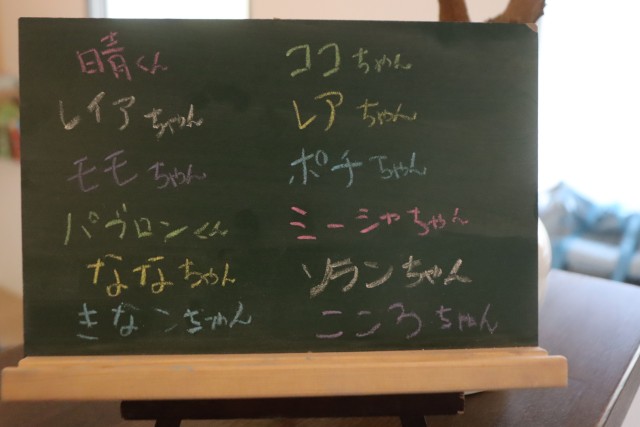 日青くん
ココちゃん
レイアちゃん
レアちゃん
モモちゃん
ポチちゃん
パブロンくん
ミーシャちゃん
ななちゃん
ソランちゃん
きなこちゃん
こころちゃん